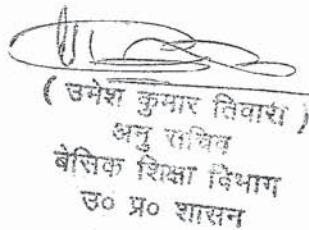 ( उमेश कुमार तिवारी )
अनु सचिव
बेसिक शिक्षा विभाग
उ० प्र० शासन